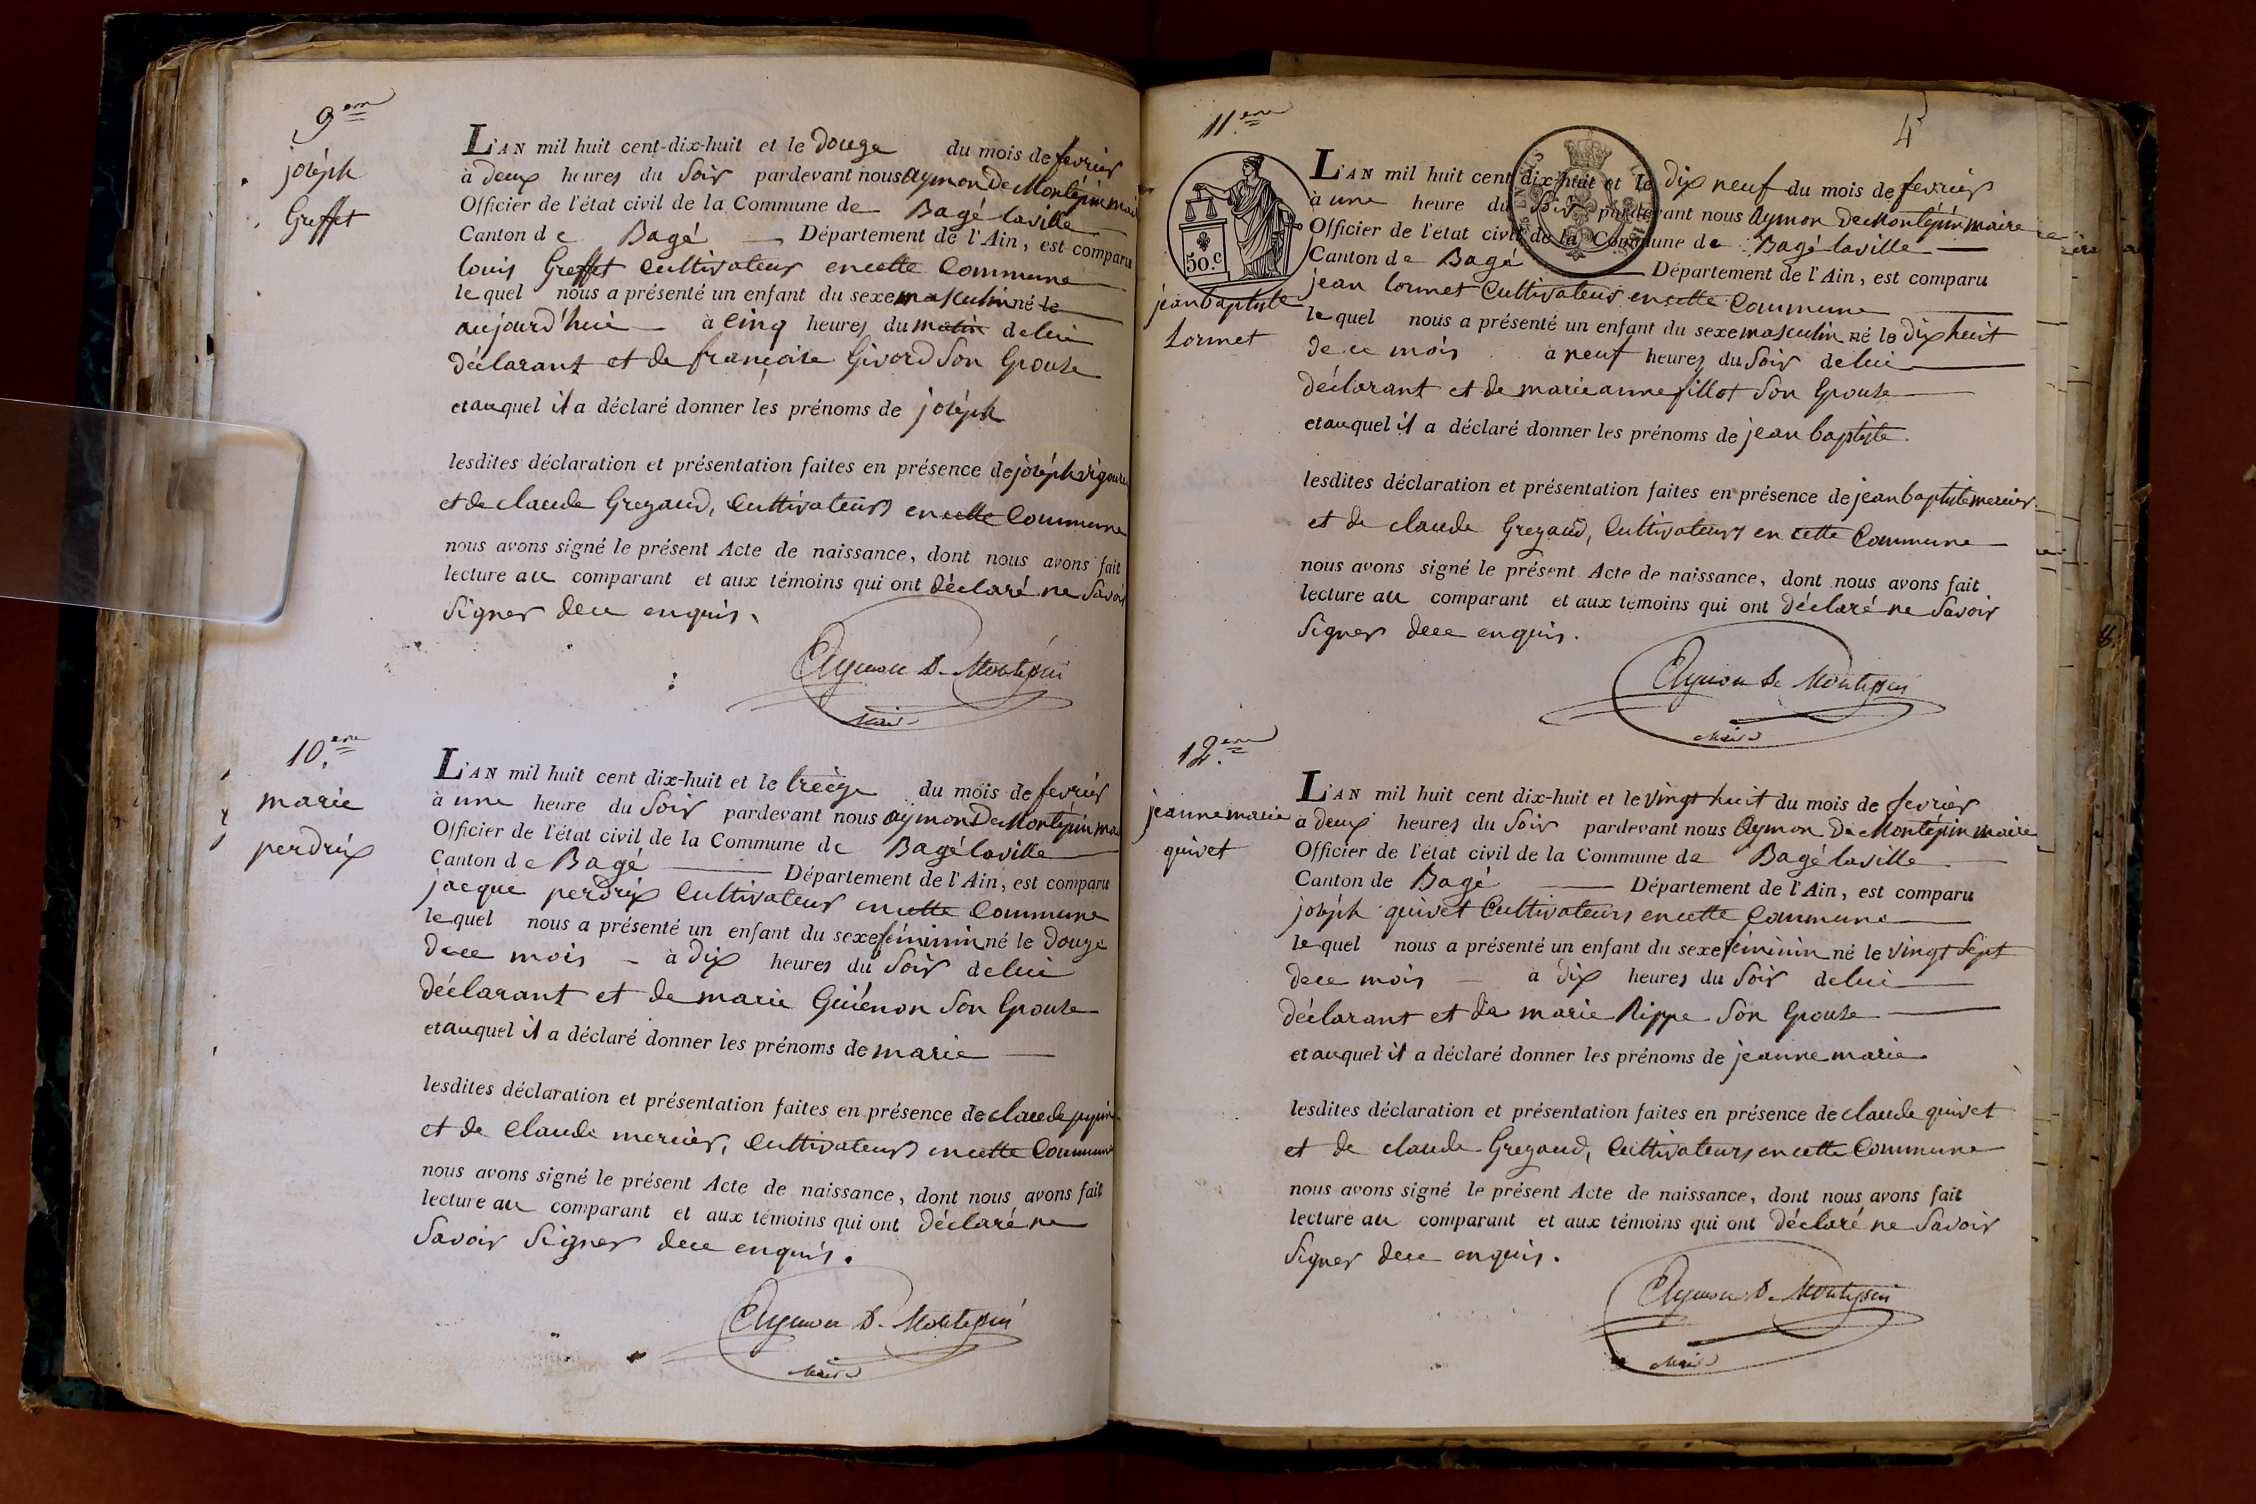 9em
joséph
Greffet
L'AN mil huit cent-dix-huit et le douze du mois de fevrier
à deux heures du Soir pardevant nous aymon De Montépin mair
Officier de l'état civil de la Commune de Bagé laville
Canton de Bagé Département de l'Ain, est comparu
louis Greffet Cultivateur en cette Commune
le quel nous a présenté un enfant du sexe masculin né le
aujourd'hui à Cinq heures du matin de lui
déclarant et de françoise Givord Son Epouse
et auquel il a déclaré donner les prénoms de joséph
lesdites déclaration et présentation faites en présence de joséph
et de claude Gregaud, Cultivateurs en cette Commune
nous avons signé le présent Acte de naissance, dont nous avons fait
lecture au comparant et aux témoins qui ont déclaré ne Savoir
Signer de ce enquis.
Aymon De Montepin
Maire
10.eme
marie
perdrix
L'AN mil huit cent dix-huit et le treize du mois de fevrier
à une heure du Soir pardevant nous aymon De Montépin mai
Officier de l'état civil de la Commune de Bagé laville
Canton de Bagé Département de l'Ain, est comparu
jacque perdrix Cultivateur en cette Commune
le quel nous a présenté un enfant du sexe féminin né le Douze
de ce mois à dix heures du Soir de lui
déclarant et de marie Guiénon Son Epouse
et auquel il a déclaré donner les prénoms de marie
lesdites déclaration et présentation faites en présence de claude
et de Claude mercier, Cultivateurs en cette Commune
nous avons signé le présent Acte de naissance, dont nous avons fait
lecture au comparant et aux témoins qui ont déclaré ne
Savoir Signer de ce enquis.
Aymon De Montepin
Maire
4
11.eme
50.c
jean baptiste
Lormet
L'AN mil huit cent dix-huit et le dix neuf du mois de fevrier
à une heure du Soir pardevant nous Aymon De Montépin maire
Officier de l'état civil de la Commune de Bagé laville
Canton de Bagé Département de l'Ain, est comparu
jean Lormet Cultivateur en cette Commune
le quel nous a présenté un enfant du sexe masculin né le Dix huit
de ce mois à neuf heures du Soir de lui
déclarant et de marie anne fillot Son Epouse
et auquel il a déclaré donner les prénoms de jean baptiste
lesdites déclaration et présentation faites en présence de jean baptiste mercier
et de claude Gregaud, Cultivateurs en cette Commune
nous avons signé le présent Acte de naissance, dont nous avons fait
lecture au comparant et aux témoins qui ont déclaré ne Savoir
Signer de ce enquis.
Aymon De Montepin
Maire
12.eme
jeanne marie
quivet
L'AN mil huit cent dix-huit et le vingt huit du mois de fevrier
à deux heures du Soir pardevant nous Aymon De Montépin maire
Officier de l'état civil de la Commune de Bagé laville
Canton de Bagé Département de l'Ain, est comparu
joséph quivet Cultivateurs en cette Commune
le quel nous a présenté un enfant du sexe féminin né le vingt Sept
de ce mois à dix heures du Soir de lui
déclarant et de marie Rippe Son Epouse
et auquel il a déclaré donner les prénoms de jeanne marie
lesdites déclaration et présentation faites en présence de claude quivet
et de claude Gregaud, Cultivateurs en cette Commune
nous avons signé le présent Acte de naissance, dont nous avons fait
lecture au comparant et aux témoins qui ont déclaré ne Savoir
Signer de ce enquis.
Aymon De Montepin
Maire